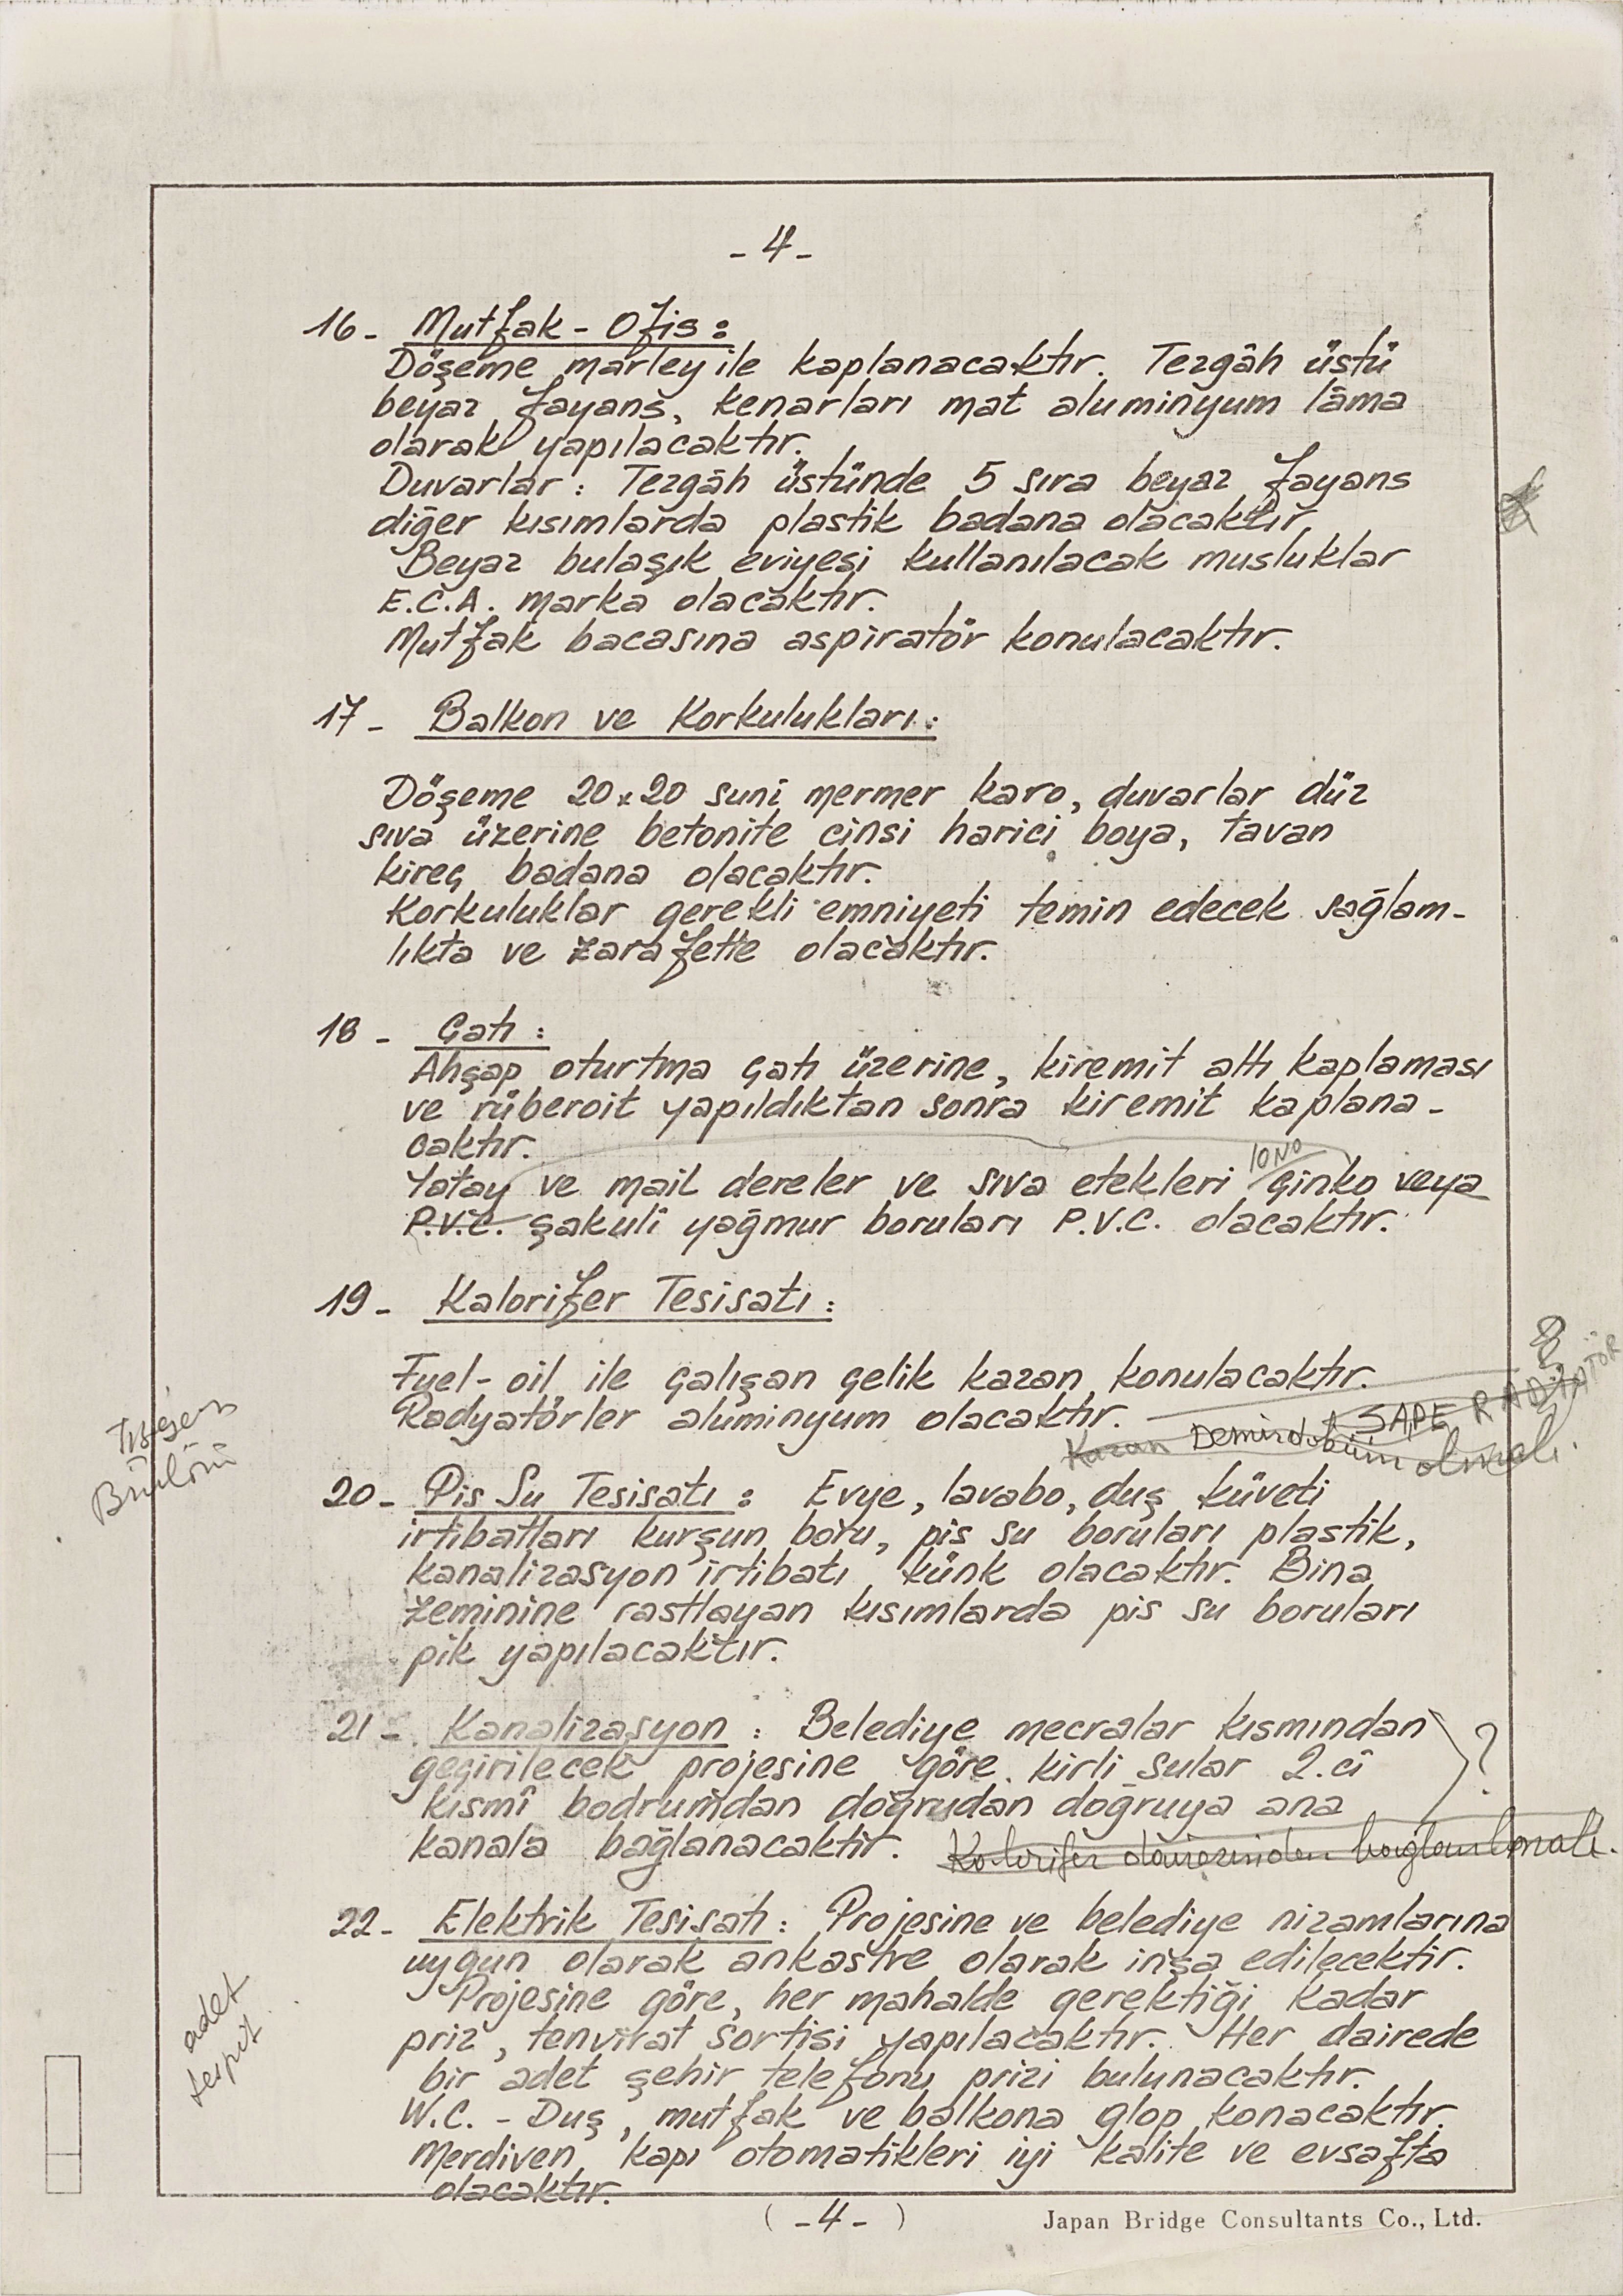 - 4 -
16 - Mutfak - Ofis :
Döşeme marley ile kaplanacaktır. Tezgâh üstü
beyaz fayans, kenarları mat aluminyum lâma
olarak yapılacaktır.
Duvarlar : Tezgâh üstünde 5 sıra beyaz fayans
diğer kısımlarda plastik badana olacaktır.
Beyaz bulaşık eviyesi kullanılacak musluklar
E.C.A. marka olacaktır.
Mutfak bacasına aspiratör konulacaktır.
17 - Balkon ve Korkulukları :
Döşeme 20x20 suni mermer karo, duvarlar düz
sıva üzerine betonite cinsi harici boya, tavan
kireç badana olacaktır.
Korkuluklar gerekli emniyeti temin edecek sağlam-
lıkta ve zarafette olacaktır.
18 - Çatı :
Ahşap oturtma çatı üzerine, kiremit altı kaplaması
ve rüberoit yapıldıktan sonra kiremit kaplana-
caktır.
10 NO
Yatay ve mail dereler ve sıva etekleri çinko veya
P.V.C. şakuli yağmur boruları P.V.C. olacaktır.
19 - Kalorifer Tesisatı :
Fuel-oil ile çalışan çelik kazan konulacaktır.
Radyatörler aluminyum olacaktır.
SAPE RADYATÖR
Kazan Demirdöküm olmalı.
20 - Pis Su Tesisatı : Evye, lavabo, duş küveti
irtibatları kurşun boru, pis su boruları plastik,
kanalizasyon irtibatı künk olacaktır. Bina
zeminine rastlayan kısımlarda pis su boruları
pik yapılacaktır.
21 - Kanalizasyon : Belediye mecralar kısmından
geçirilecek projesine göre kirli sular 2.ci
kısmî bodrumdan doğrudan doğruya ana
kanala bağlanacaktır.
?
Kalorifer dairesinden bağlanılmalı.
22 - Elektrik Tesisatı : Projesine ve belediye nizamlarına
uygun olarak ankastre olarak inşa edilecektir.
Projesine göre, her mahalde gerektiği kadar
priz, tenvirat sortisi yapılacaktır. Her dairede
bir adet şehir telefonu prizi bulunacaktır.
W.C. - Duş, mutfak ve balkona glop konacaktır.
Merdiven kapı otomatikleri iyi kalite ve evsafta
olacaktır.
adet
tespit
( - 4 - )
Japan Bridge Consultants Co., Ltd.